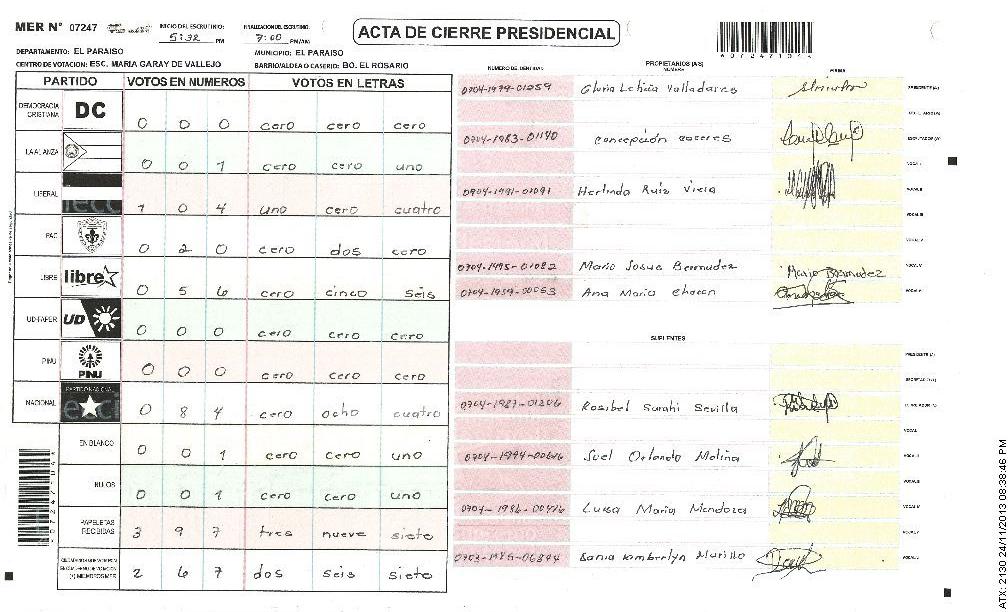 MER N° 07247
INICIO DEL ESCRUTINIO: 5:32 PM
FINALIZACION DEL ESCRUTINIO: 7:00 PM/AM
ACTA DE CIERRE PRESIDENCIAL
DEPARTAMENTO: EL PARAISO
MUNICIPIO: EL PARAISO
CENTRO DE VOTACION: ESC. MARIA GARAY DE VALLEJO
BARRIO/ALDEA O CASERIO: BO. EL ROSARIO
PARTIDO VOTOS EN NUMEROS VOTOS EN LETRAS
DEMOCRACIA CRISTIANA DC 0 0 0 cero cero cero
LA ALIANZA 0 0 1 cero cero uno
LIBERAL 1 0 4 uno cero cuatro
PAC 0 2 0 cero dos cero
LIBRE libre 0 5 6 cero cinco seis
UD-FAPER UD 0 0 0 cero cero cero
PINU PINU 0 0 0 cero cero cero
NACIONAL PARTIDO NACIONAL 0 8 4 cero ocho cuatro
EN BLANCO 0 0 1 cero cero uno
NULOS 0 0 1 cero cero uno
PAPELETAS RECIBIDAS 3 9 7 tres nueve siete
2 6 7 dos seis siete
NUMERO DE IDENTIDAD PROPIETARIOS (AS) NOMBRE FIRMA
0704-1979-01259 Gloria Leticia Valladares PRESIDENTE (A)
SECRETARIO (A)
0704-1983-01140 Concepción caceres ESCRUTADOR (A)
VOCAL I
0704-1991-01091 Herlinda Ruiz Viera VOCAL II
VOCAL III
VOCAL IV
0704-1995-01082 Mario Josue Bermudez Mario Bermudez VOCAL V
0704-1959-00053 Ana Maria chacon
SUPLENTES
PRESIDENTE (A)
SECRETARIO (A)
0704-1987-01206 Rosibel Sarahi Sevilla ESCRUTADOR (A)
VOCAL I
0704-1994-00616 Suel Orlando Molina VOCAL II
VOCAL III
0704-1986-00476 Luisa Maria Mendoza
0703-1986-06844 Murillo
ATX: 2130 24/11/2013 08:38:46 PM